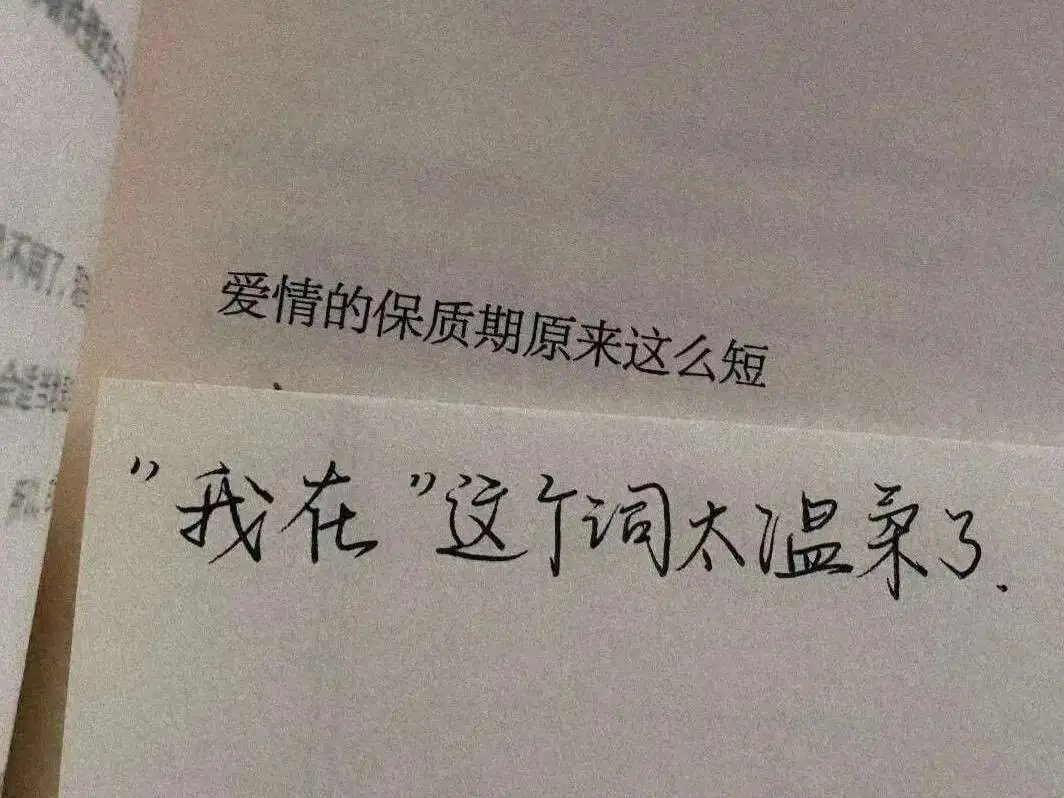 爱情的保质期原来这么短
”我在”这个词太温柔了.